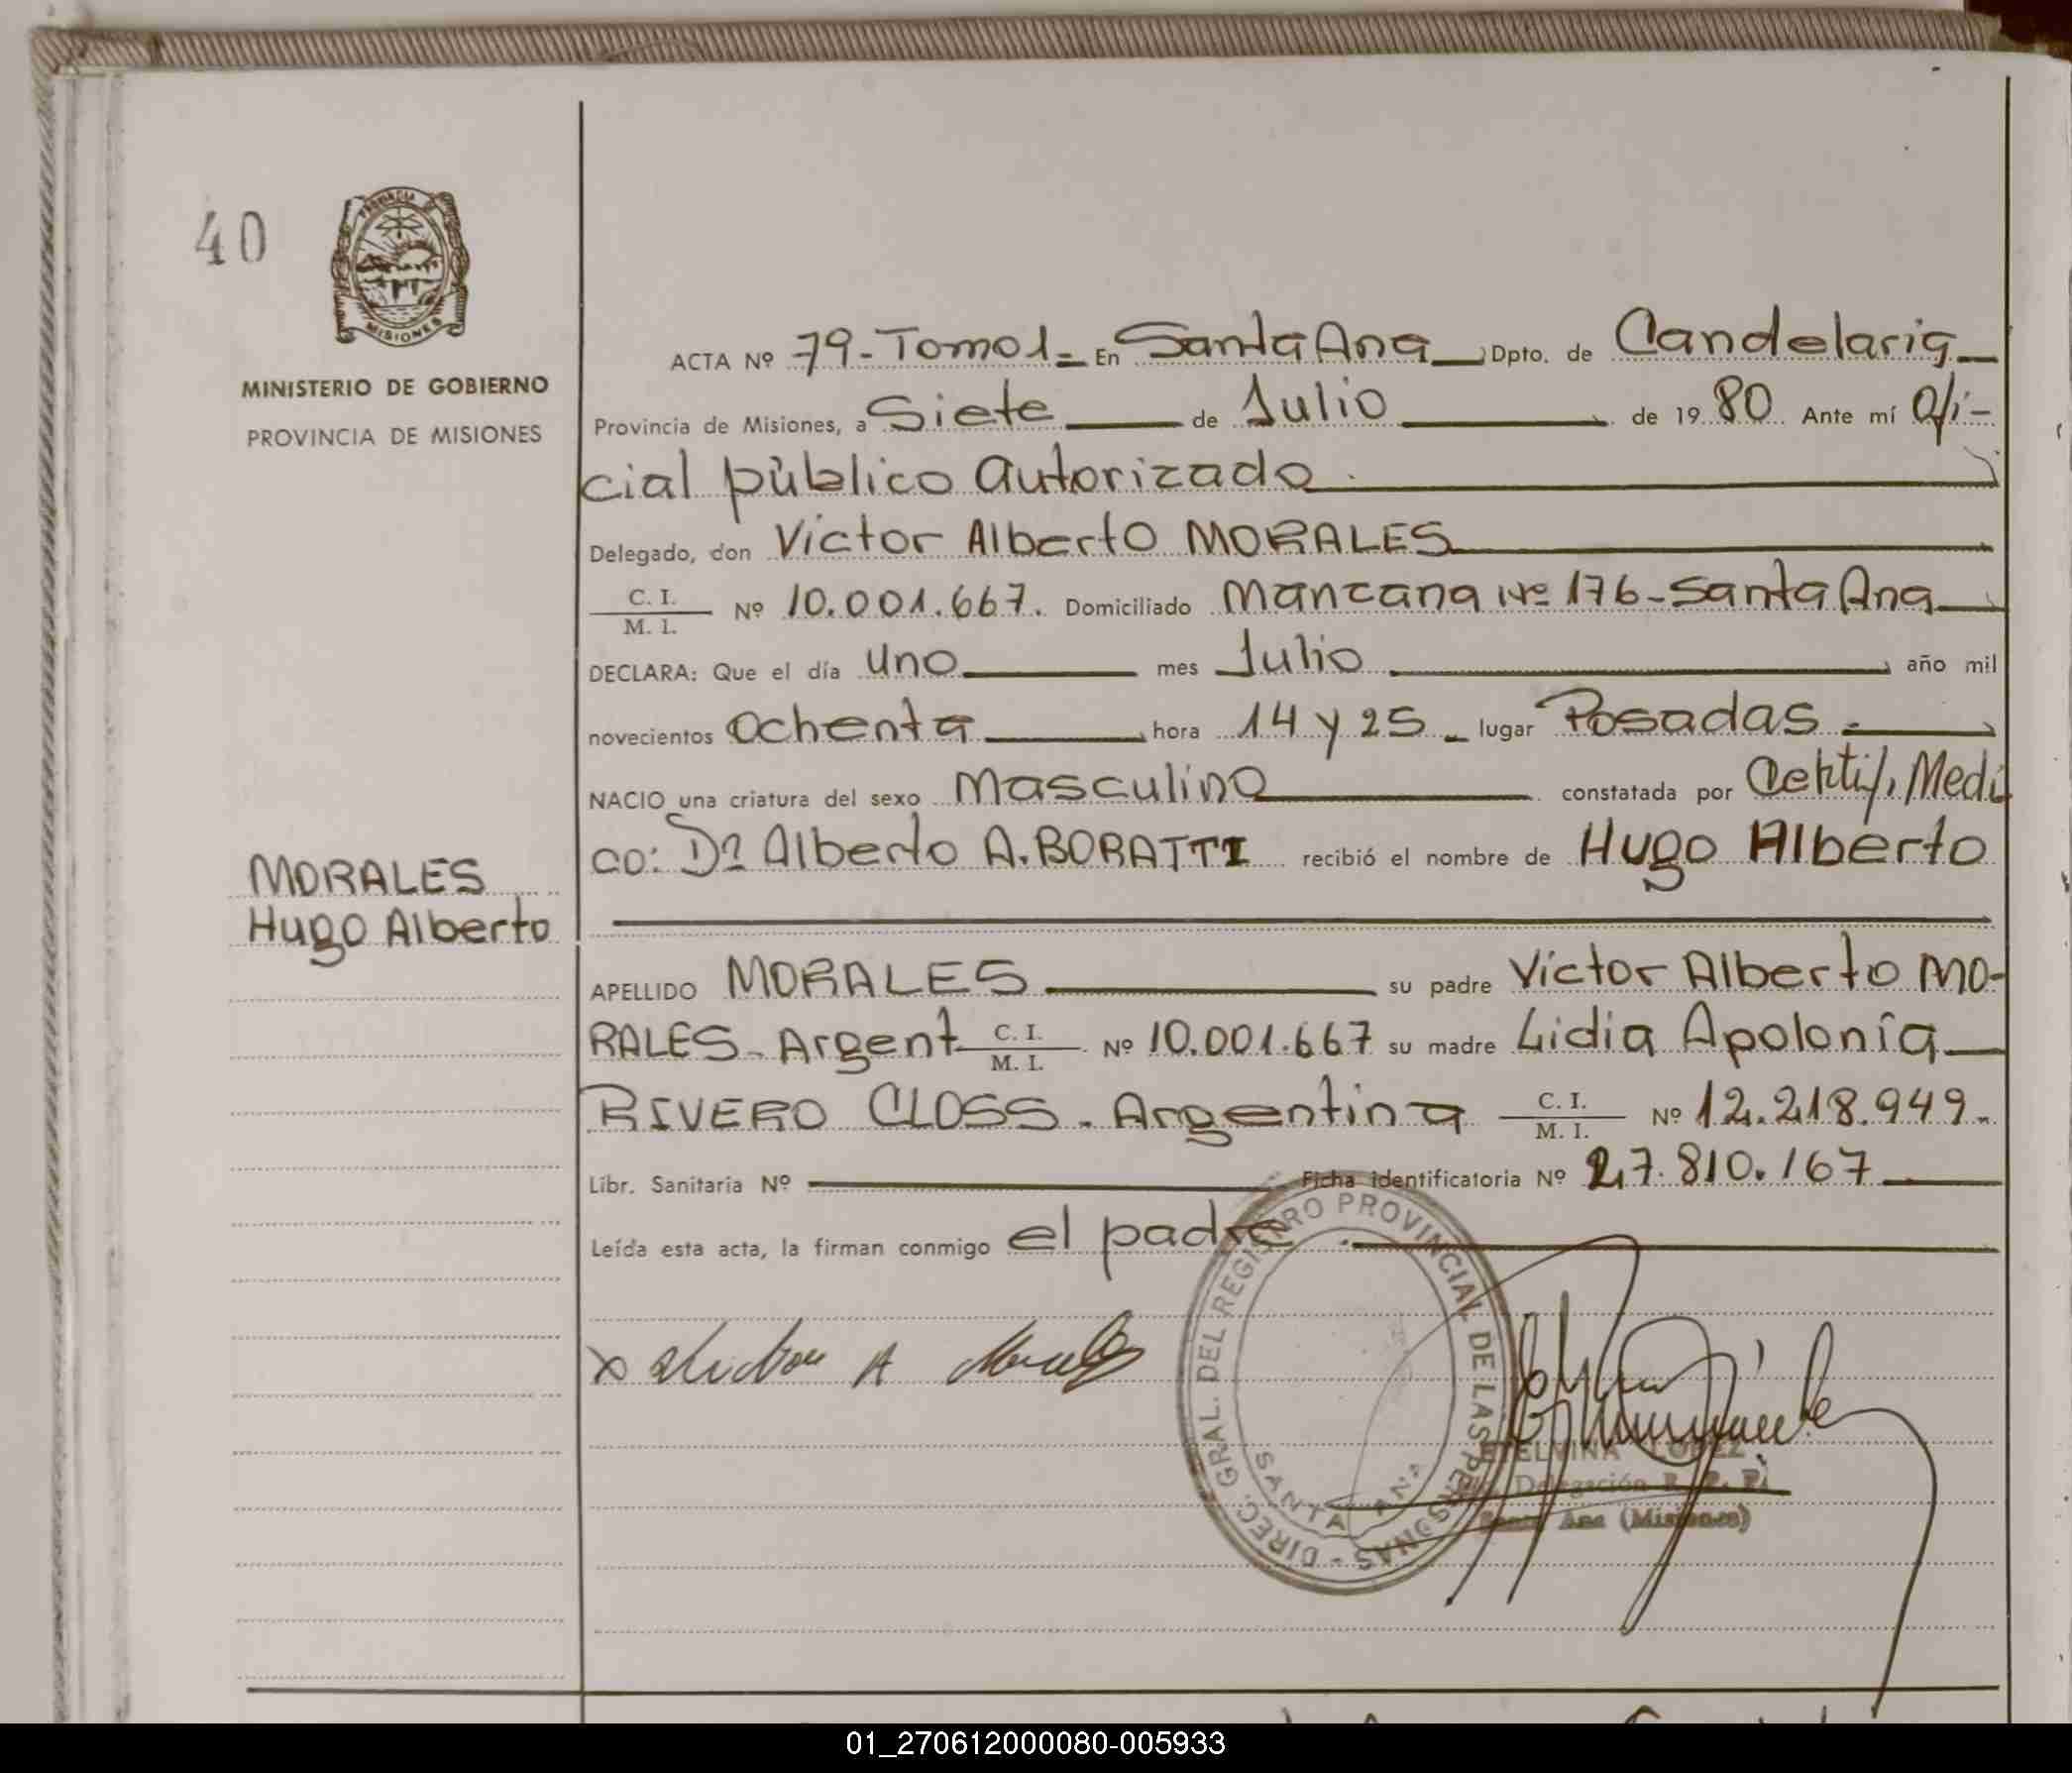 40
PROVINCIA DE
MISIONES
MINISTERIO DE GOBIERNO
PROVINCIA DE MISIONES
MORALES
Hugo Alberto
ACTA Nº 79-Tomo1- En Santa Ana Dpto. de Candelaria
Provincia de Misiones, a Siete de Julio de 1980 Ante mí Ofi-
cial público Autorizado.
Delegado, don Víctor Alberto MORALES
C. I.
M. I. Nº 10.001.667. Domiciliado Manzana Nº 176-Santa Ana
DECLARA: Que el día uno mes Julio año mil
novecientos Ochenta hora 14 y 25 - lugar Posadas.-
NACIO una criatura del sexo Masculino constatada por Certif. Medi
co: Dr Alberto A. BORATTI recibió el nombre de Hugo Alberto
APELLIDO MORALES su padre Víctor Alberto MO-
RALES- Argent C. I. M. I. Nº 10.001.667 su madre Lidia Apolonía
RIVERO CLOSS - Argentina C. I. M. I. Nº 12.218.949-
Libr. Sanitaria Nº Ficha identificatoria Nº 27.810.167
Leída esta acta, la firman conmigo el padre.
DIREC. GRAL. DEL REGISTRO PROVINCIAL DE LAS PERSONAS -
SANTA ANA
x A Morales
ETELVINA LOPEZ
Delegación R. P. P.
Santa Ana (Misiones)
01_270612000080-005933